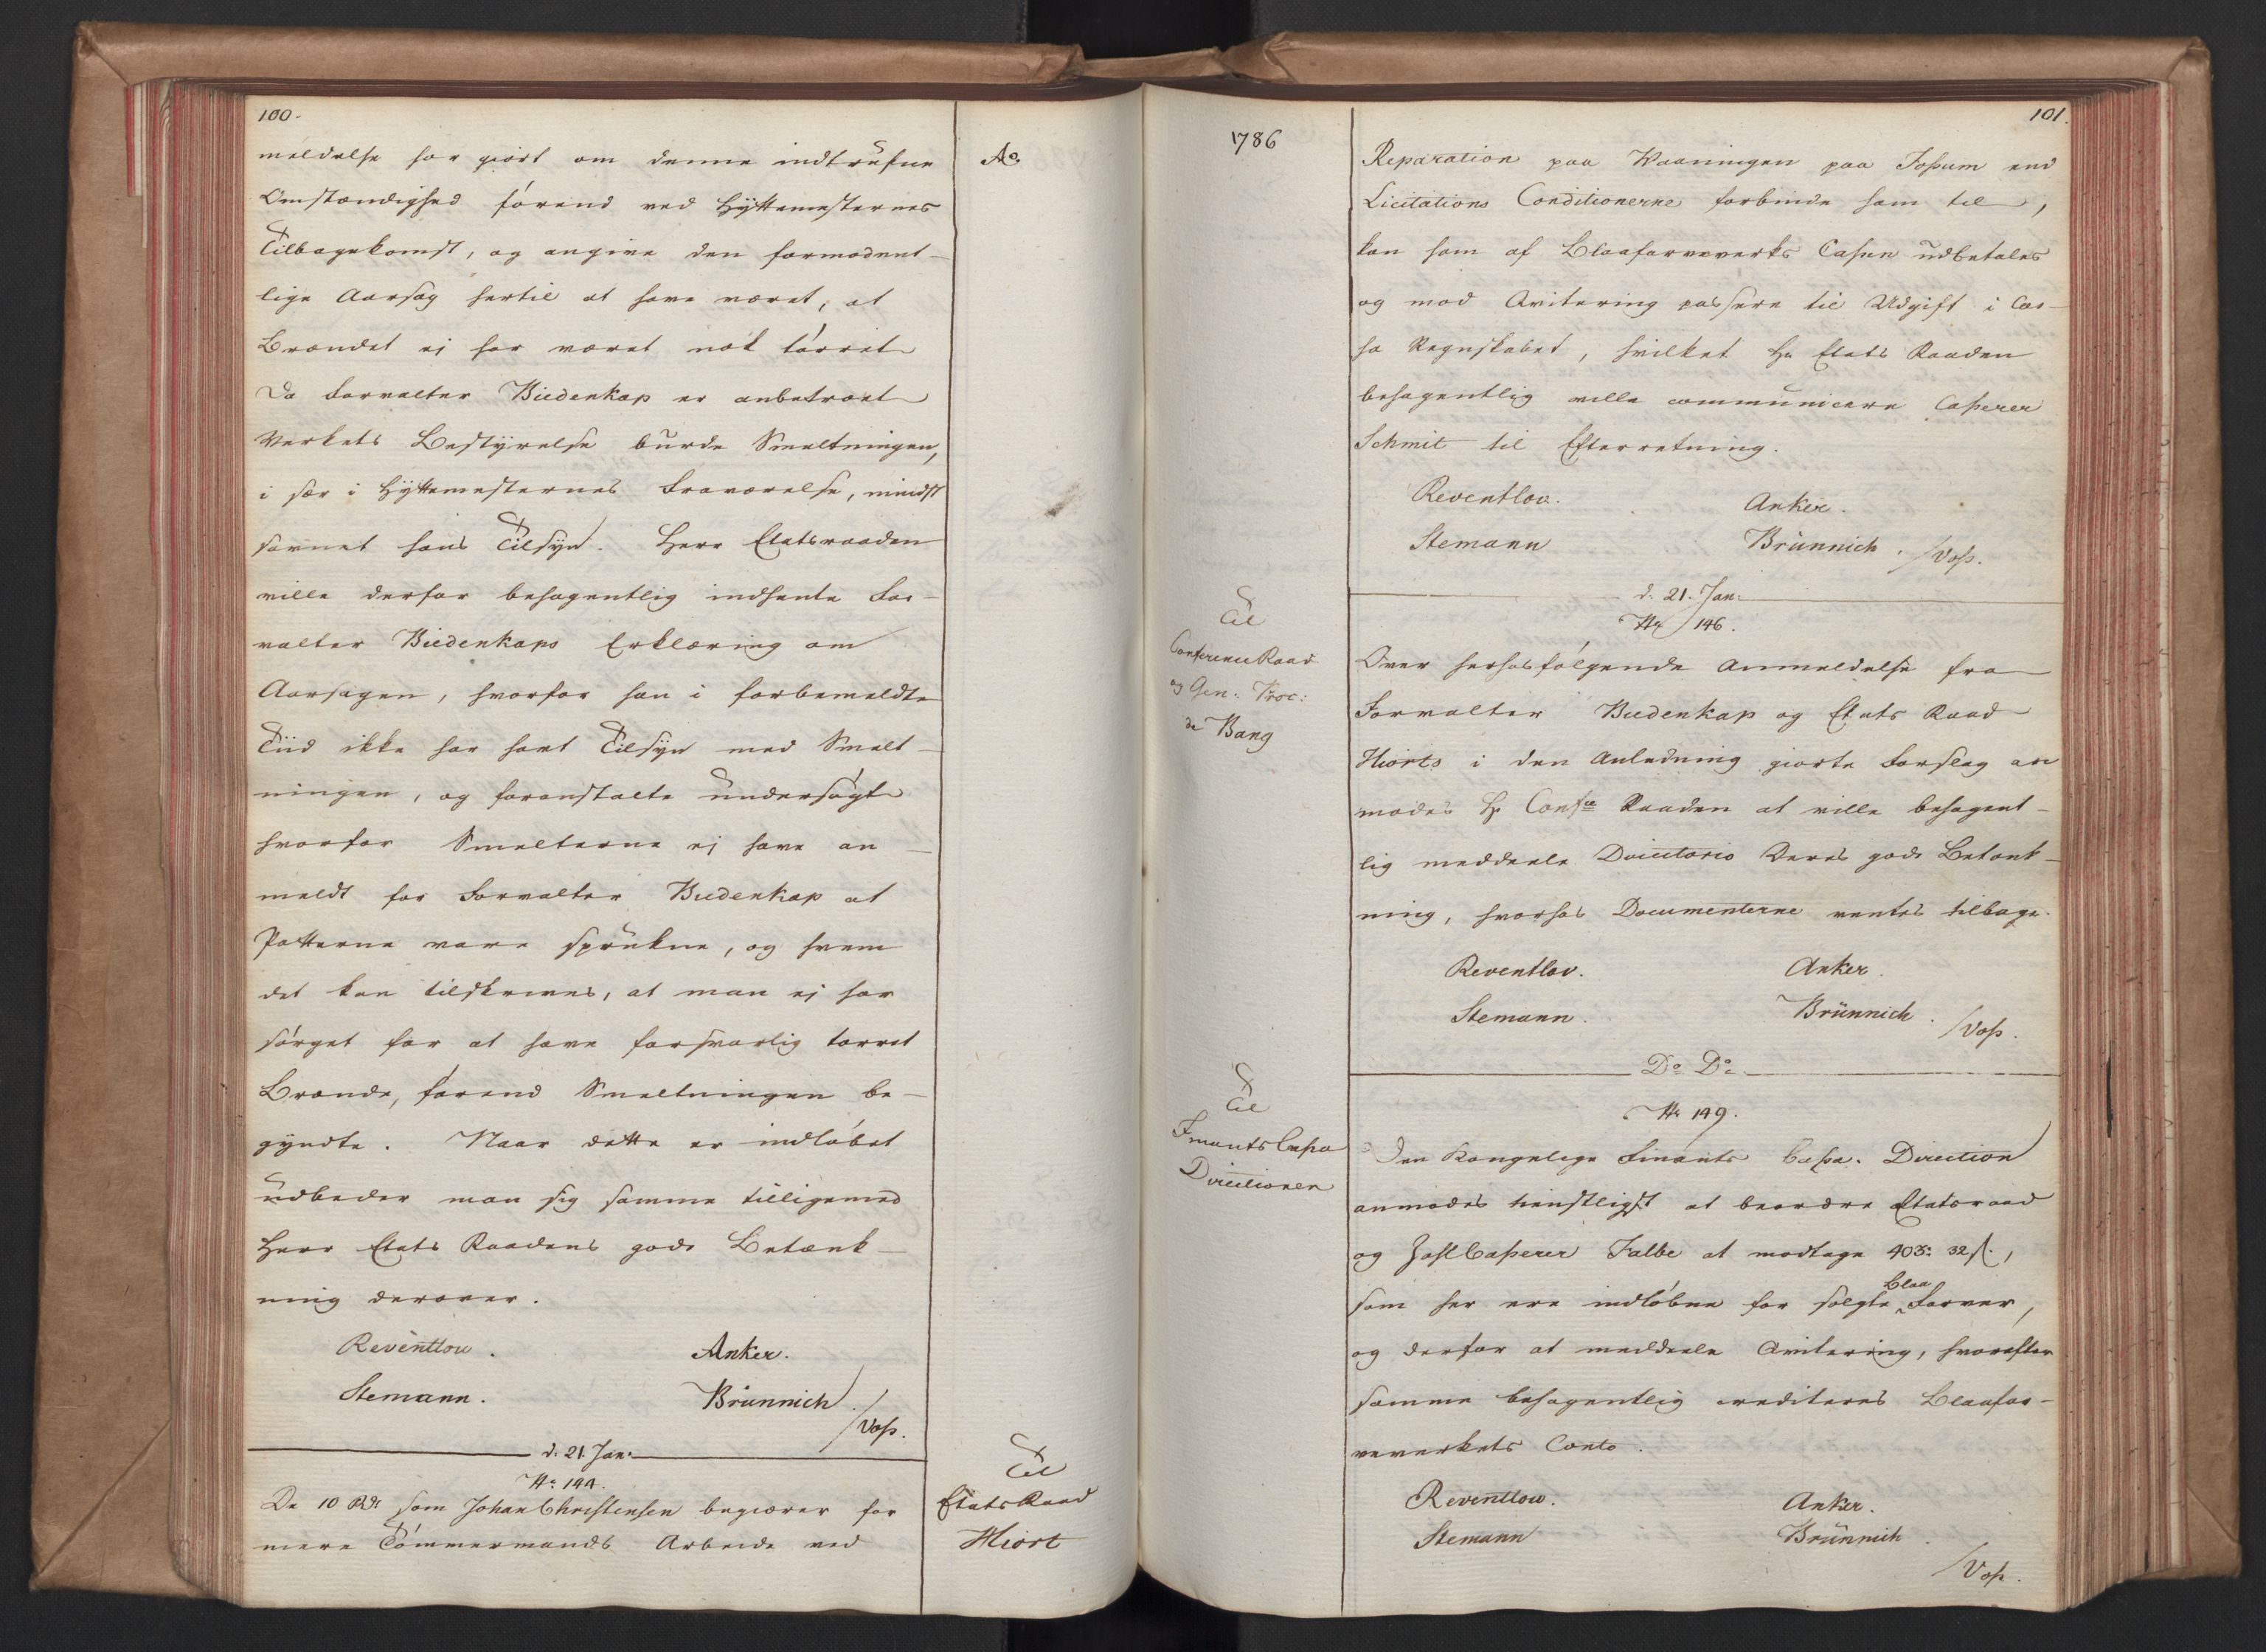 100.
meldelse har giort om denne indtrufne
Omstændighed förend ved Hyttemesternes
Tilbagekomst, og angive den formodent-
lige Aarsag hertil at have været, at
Brændet ej har været nok törret
Da Forvalter Biedenkap er anbetroet
Verkets Bestyrelse burde Smeltningen,
i sær i Hyttemesternes Fraværelse, mindst
savnet hans Tilsyn. Herr Etatsraaden
ville derfor behagentlig indhente For-
valter Biedenkaps Erklæring om
Aarsagen, hvorfor han i forbemeldte
Tiid ikke har havt Tilsyn med Smelt-
ningen, og foranstalte undersögt
hvorfor Smelterne ej have an-
meldt for Forvalter Biedenkap at
Potterne vare sprukne, og hvem
det kan tilskrives, at man ej har
sörget for at have forsvarlig torret
Brænde, förend Smeltningen be-
gyndte. Naar dette er indlöbet
udbeder man sig samme tilligemed
Herr Etats Raadens gode Betænk-
ning derover.
Reventlow. Anker.
Stemann. Brünnich.
/Voss.
d. 21. Jan:
No 144.
De 10 Rdr som Johan Christensen begiærer for
mere Tömmermands Arbeide ved
Ao
Til
Etats Raad
Hiort
1786
101.
Reparation paa Vaaningen paa Fossum end
Licitations Conditionerne forbinde ham til,
kan ham af Blaafarveverks Cassen udbetales
og mod Qvitering passere til Udgift i Cas-
sa Regnskabet, hvilket Hr Etats Raaden
behagentlig ville communicere Casserer
Schmit til Efterretning.
Reventlow. Anker.
Stemann Brünnich. /Voss.
d. 21. Jan:
Til
Conference Raad
og Gen: Proc:
de Bang
No 146.
Over hershosfölgende Anmeldelse fra
Forvalter Biedenkap og Etats Raad
Hiorts i den Anledning giorte Forslag an
modes Hr Confce Raaden at ville behagent-
lig meddeele Directorio Deres gode Betænk-
ning, hvorhos Documenterne ventes tilbage.
Reventlow. Anker.
Stemann. Brünnich. /Voss.
Do Do
Til
Finants Cassa
Directionen
No 149.
Den Kongelige Finants Cassa Direction
anmodes tienstligst at beordre Etatsraad
og Zahl Casserer Falbe at modtage 403: 32 s.,
som her ere indlöbne for solgte Blaa Farver,
og derfor at meddeele Qvitering, hvorefter
samme behagentlig crediteres Blaafar-
veverkets Conto.
Reventlow. Anker.
Stemann Brünnich.
/Voss.